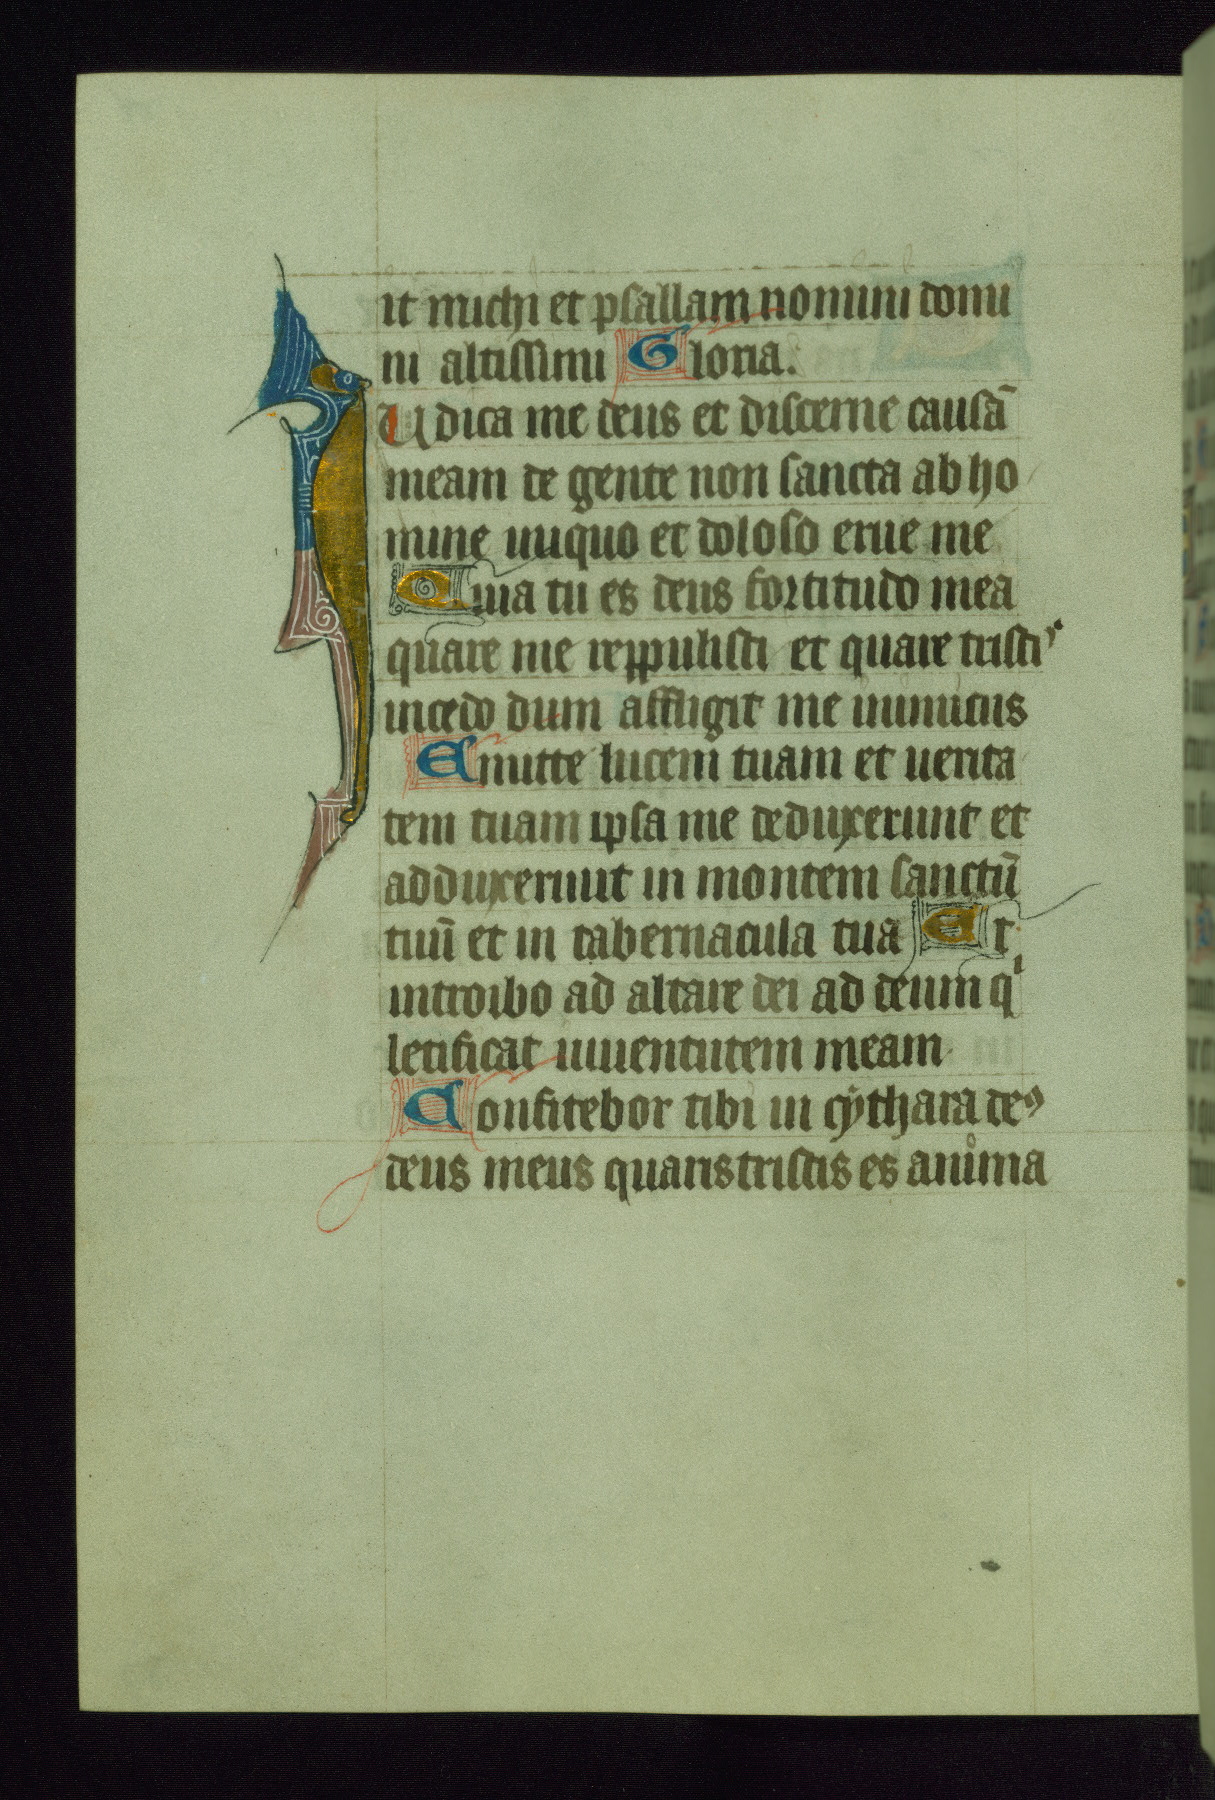 it michi et psallam nomini domi
ni altissimi Gloria.
IUdica me deus et discerne causā
meam de gente non sancta ab ho
mine iniquo et doloso erue me
Quia tu es deus fortitudo mea
quare me reppulisti et quare tristi
incedo dum affligit me inimicus
Emitte lucem tuam et uerita
tem tuam ipsa me deduxerunt et
adduxerunt in montem sanctū
tuū et in tabernacula tua Et
introibo ad altare dei ad deum qⁱ
letificat iuuentutem meam
Confitebor tibi in cythara deꝰ
deus meus quaris tristis es anima